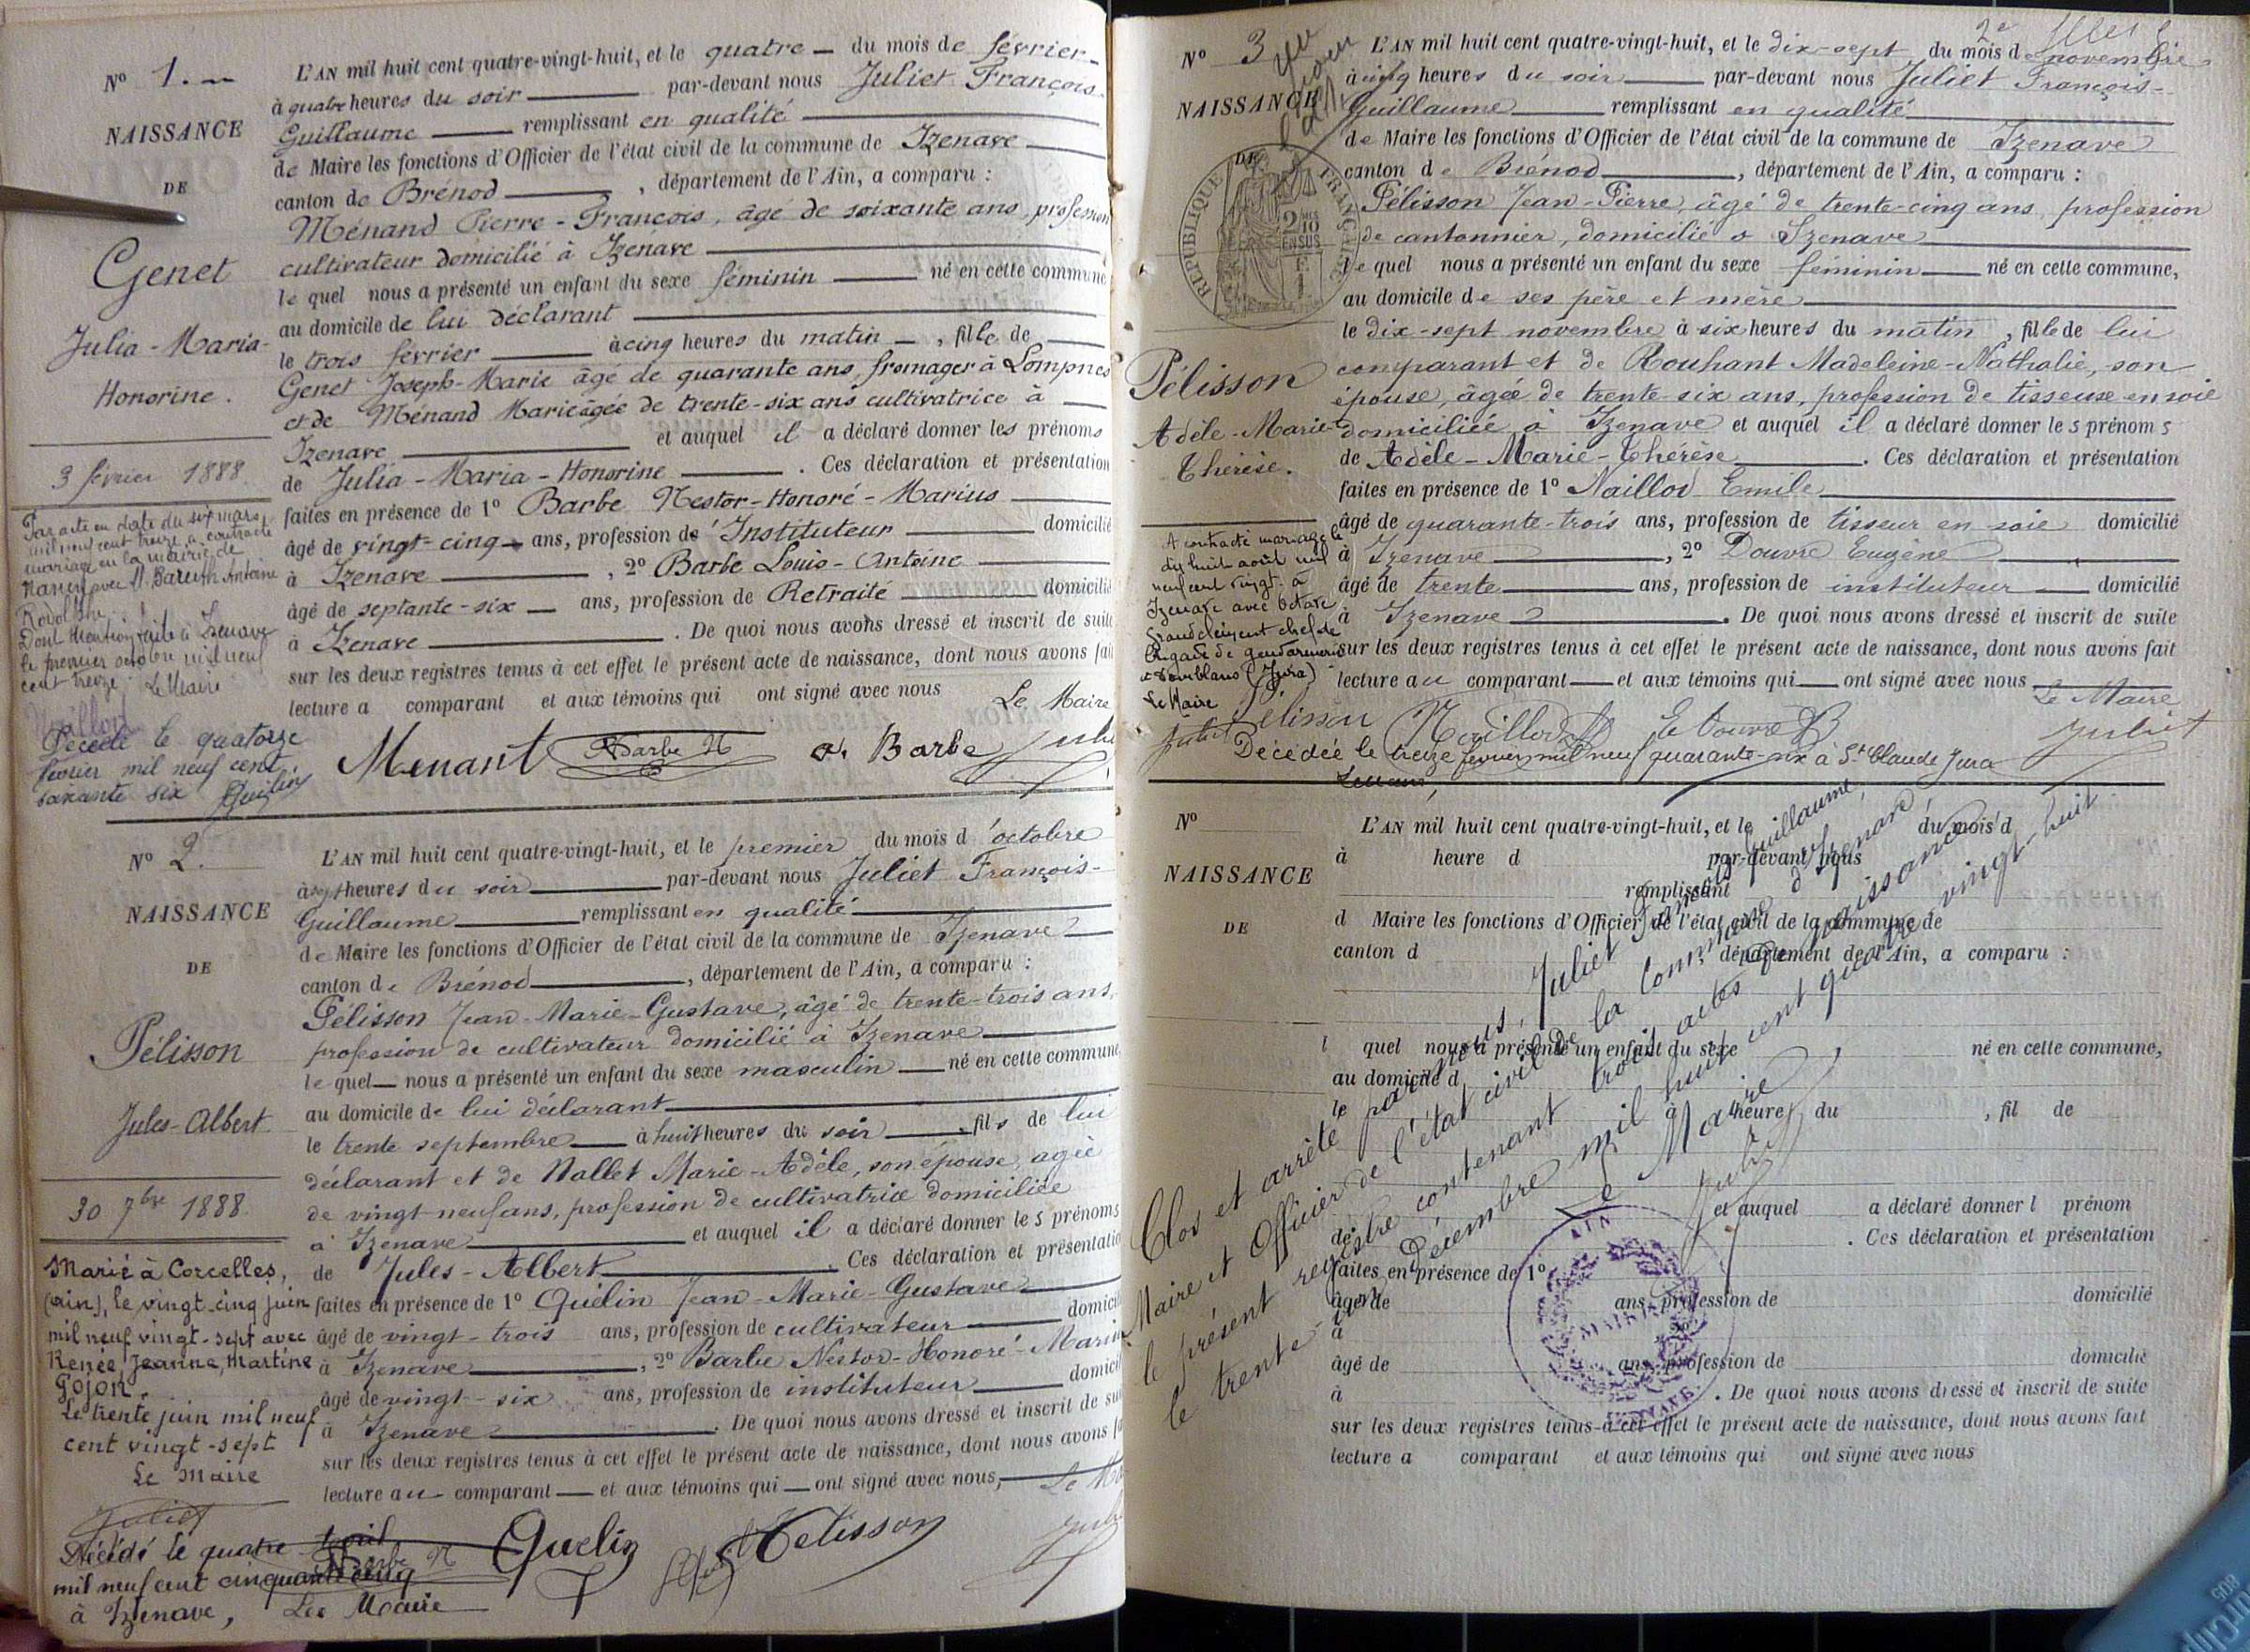 N° 1. —
NAISSANCE
DE
Genet
Julia - Maria-
Honorine.
3 février 1888.
Par acte en date du six mars
mil neuf cent treize, a contracté
mariage en la mairie de
Nancy avec M. Baruth Antoine
Rodolphe.
Dont mention faite à Izenave
le premier octobre mil neuf
cent treize. Le Maire
Naillod
Décédée le quatorze
février mil neuf cent
soixante six Quelin
L'AN mil huit cent quatre-vingt-huit, et le quatre — du mois de février
à quatre heures du soir — par-devant nous Juliet François-
Guillaume — remplissant en qualité —
de Maire les fonctions d'Officier de l'état civil de la commune de Izenave —
canton de Brénod —, département de l'Ain, a comparu :
Ménand Pierre - François, âgé de soixante ans, profession
cultivateur domicilié à Izenave —
le quel nous a présenté un enfant du sexe féminin — né en cette commune
au domicile de lui déclarant —
le trois février — à cinq heures du matin —, fille de —
Genet Joseph-Marie âgé de quarante ans, fromager à Lompnes
et de Ménand Marie âgée de trente-six ans cultivatrice à —
Izenave — et auquel il a déclaré donner les prénoms
de Julia - Maria - Honorine —. Ces déclaration et présentation
faites en présence de 1° Barbe Nestor-Honoré-Marius —
âgé de vingt-cinq — ans, profession d'Instituteur — domicilié
à Izenave —, 2° Barbe Louis - Antoine —
âgé de septante-six — ans, profession de Retraité — domicilié
à Izenave —. De quoi nous avons dressé et inscrit de suite
sur les deux registres tenus à cet effet le présent acte de naissance, dont nous avons fait
lecture a comparant et aux témoins qui ont signé avec nous Le Maire
Menant Barbe N. A. Barbe Juliet
N° 2.
NAISSANCE
DE
Pélisson
Jules-Albert.
30 7bre 1888.
Marié à Corcelles,
(ain), le vingt-cinq juin
mil neuf vingt-sept avec
Renée, Jeanne, Martine
Gojon.
Le trente juin mil neuf
cent vingt-sept
Le Maire
Juliet
Décédé le quatre avril
mil neuf cent cinquante cinq
à Izenave, Le Maire
L'AN mil huit cent quatre-vingt-huit, et le premier du mois d'octobre
à sept heures du soir — par-devant nous Juliet François-
Guillaume — remplissant en qualité —
de Maire les fonctions d'Officier de l'état civil de la commune de Izenave —
canton de Brénod —, département de l'Ain, a comparu :
Pélisson Jean-Marie-Gustave, âgé de trente-trois ans,
profession de cultivateur domicilié à Izenave —
le quel — nous a présenté un enfant du sexe masculin — né en cette commune,
au domicile de lui déclarant —
le trente septembre — à huit heures du soir —, fils de lui
déclarant et de Nallet Marie-Adèle, son épouse, agée
de vingt-neuf ans, profession de cultivatrice domiciliée
à Izenave — et auquel il a déclaré donner les prénoms
de Jules - Albert —. Ces déclaration et présentatio
faites en présence de 1° Quélin Jean-Marie-Gustave —
âgé de vingt-trois ans, profession de cultivateur — domicil
à Izenave —, 2° Barbe Nestor-Honoré-Marius
âgé de vingt-six ans, profession de instituteur — domicil
à Izenave —. De quoi nous avons dressé et inscrit de sui
sur les deux registres tenus à cet effet le présent acte de naissance, dont nous avons fa
lecture au comparant — et aux témoins qui — ont signé avec nous, — Le Ma
Barbe N Quelin Pelisson Juliet
N° 3
NAISSANCE
DE
REPUBLIQUE FRANÇAISE
2/10
EN SUS
Pélisson
Adèle-Marie-
Thérèse.
A contracté mariage le
dix huit août mil
neuf cent vingt à
Izenave avec Octave
Grandclément chef de
brigade de gendarmerie
à Domblans (Jura)
Le Maire
Juliet
L'AN mil huit cent quatre-vingt-huit, et le dix-sept du mois de novembre
à cinq heures du soir — par-devant nous Juliet François-
Guillaume — remplissant en qualité —
de Maire les fonctions d'Officier de l'état civil de la commune de Izenave
canton de Brénod —, département de l'Ain, a comparu :
Pélisson Jean-Pierre, âgé de trente-cinq ans, profession
de cantonnier, domicilié à Izenave —
le quel nous a présenté un enfant du sexe féminin — né en cette commune,
au domicile de ses père et mère —
le dix-sept novembre à six heures du matin, fille de lui
comparant et de Rouhant Madeleine-Nathalie, son
épouse, âgée de trente-six ans, profession de tisseuse en soie
domiciliée à Izenave et auquel il a déclaré donner les prénoms
de Adèle-Marie-Thérèse —. Ces déclaration et présentation
faites en présence de 1° Naillod Emile —
âgé de quarante-trois ans, profession de tisseur en soie domicilié
à Izenave —, 2° Douvre Eugène —
âgé de trente — ans, profession de instituteur — domicilié
à Izenave —. De quoi nous avons dressé et inscrit de suite
sur les deux registres tenus à cet effet le présent acte de naissance, dont nous avons fait
lecture au comparant — et aux témoins qui — ont signé avec nous — Le Maire
Pélisson Naillod E. Douvre Juliet
Décédée le treize février mil neuf quarante-six à St Claude Jura
N°
NAISSANCE
DE
L'AN mil huit cent quatre-vingt-huit, et le du mois d
à heure d par-devant nous
remplissant
d Maire les fonctions d'Officier de l'état civil de la commune de
canton d département de l'Ain, a comparu :
l quel nous a présenté un enfant du sexe né en cette commune,
au domicile d
le à heure du , fil de
et auquel a déclaré donner l prénom
de . Ces déclaration et présentation
faites en présence de 1°
âgé de ans, profession de domicilié
à , 2°
âgé de ans, profession de domicilié
à . De quoi nous avons dressé et inscrit de suite
sur les deux registres tenus à cet effet le présent acte de naissance, dont nous avons fait
lecture a comparant et aux témoins qui ont signé avec nous
Clos et arrêté par nous, Juliet François Guillaume,
Maire et Officier de l'état civil de la commune d'Izenave
le présent registre contenant trois actes de naissance
le trente-un Décembre mil huit cent quatre-vingt-huit.
Le Maire
Juliet
AIN
MAIRIE
IZENAVE